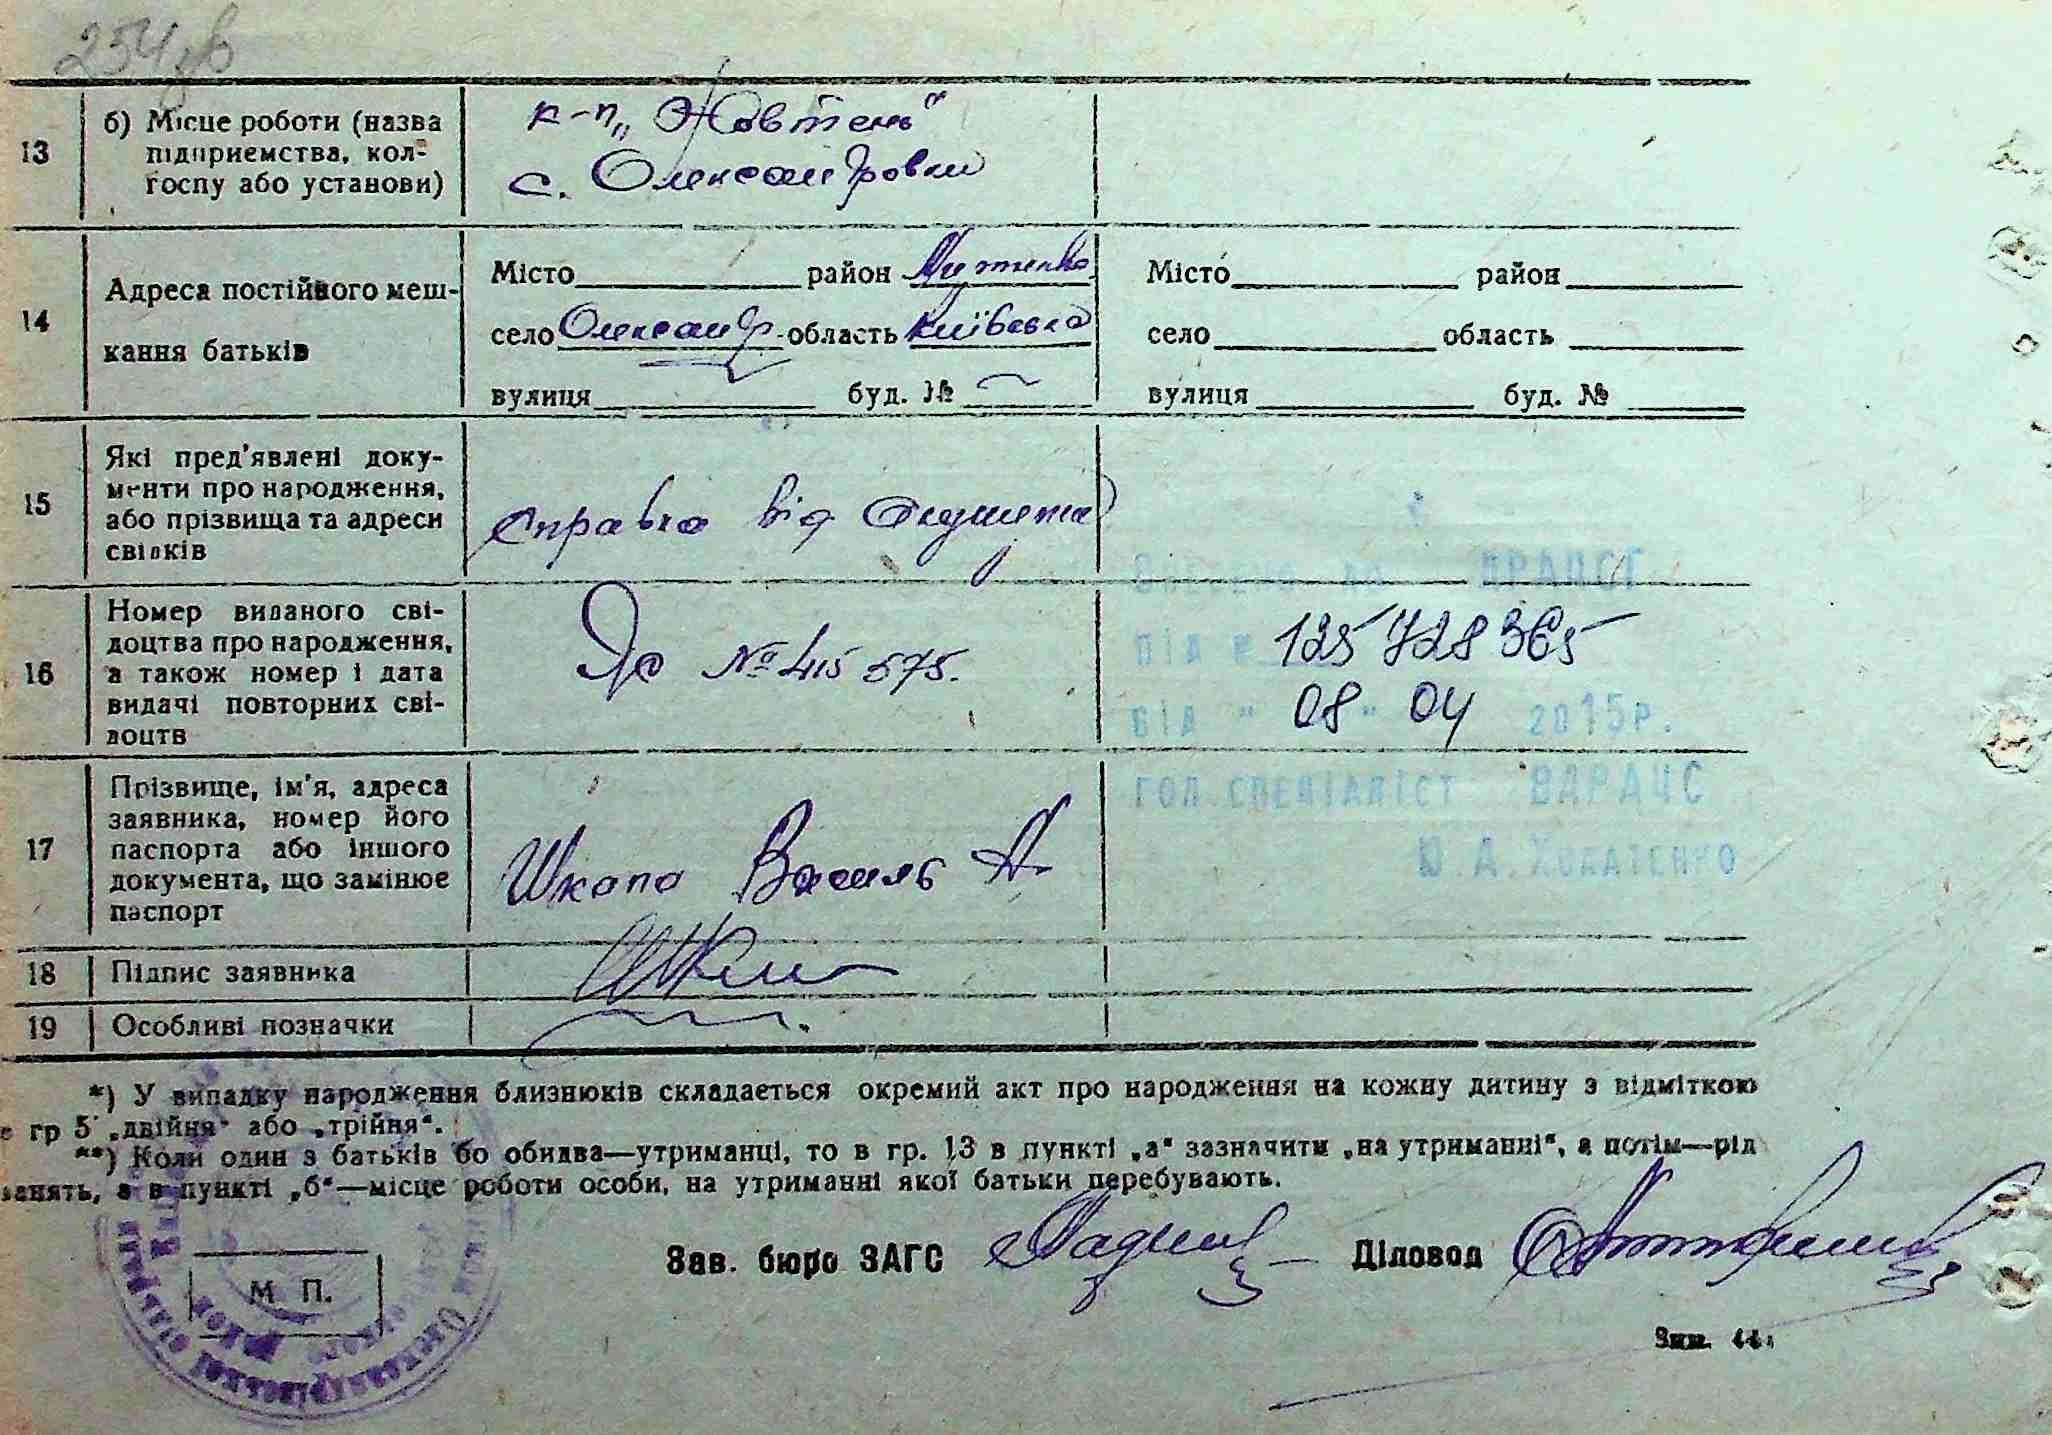 254зв
13
б) Місце роботи (назва
підприємства, кол-
госпу або установи)
к-п „Жовтень"
с. Олександровки
14
Адреса постійного меш-
кання батьків
Місто район
село Олександр. область Київська
вулиця буд. №
Місто район
село область
вулиця буд. №
15
Які пред'явлені доку-
менти про народження,
або прізвища та адреси
свідків
справка від
16
Номер виданого сві-
доцтва про народження,
а також номер і дата
видачі повторних сві-
доцтв
№ 415 575.
Внесено до ДРАЦСГ
під № 125728365
від " 08 " 04 2015р.
гол.спеціаліст ВДРАЦС
17
Прізвище, ім'я, адреса
заявника, номер його
паспорта або іншого
документа, що замінює
паспорт
Шкапа Василь А.
18
Підпис заявника
19
Особливі позначки
*) У випадку народження близнюків складається окремий акт про народження на кожну дитину з відміткою
в гр 5 „двійня" або „трійня".
**) Коли один з батьків бо обидва—утриманці, то в гр. 13 в пункті „а" зазначити „на утриманні", а потім—рід
занять, а в пункті „б"—місце роботи особи, на утриманні якої батьки перебувають.
М П.
Зав. бюро ЗАГС
Діловод